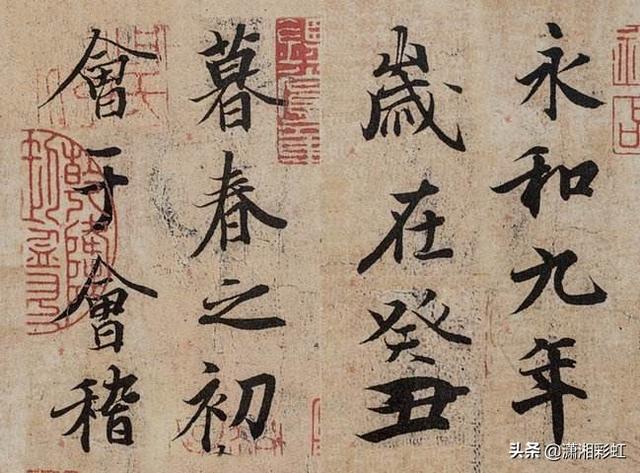 永和九年
歲在癸丑
暮春之初
會于會稽
头条 @潇湘彩虹